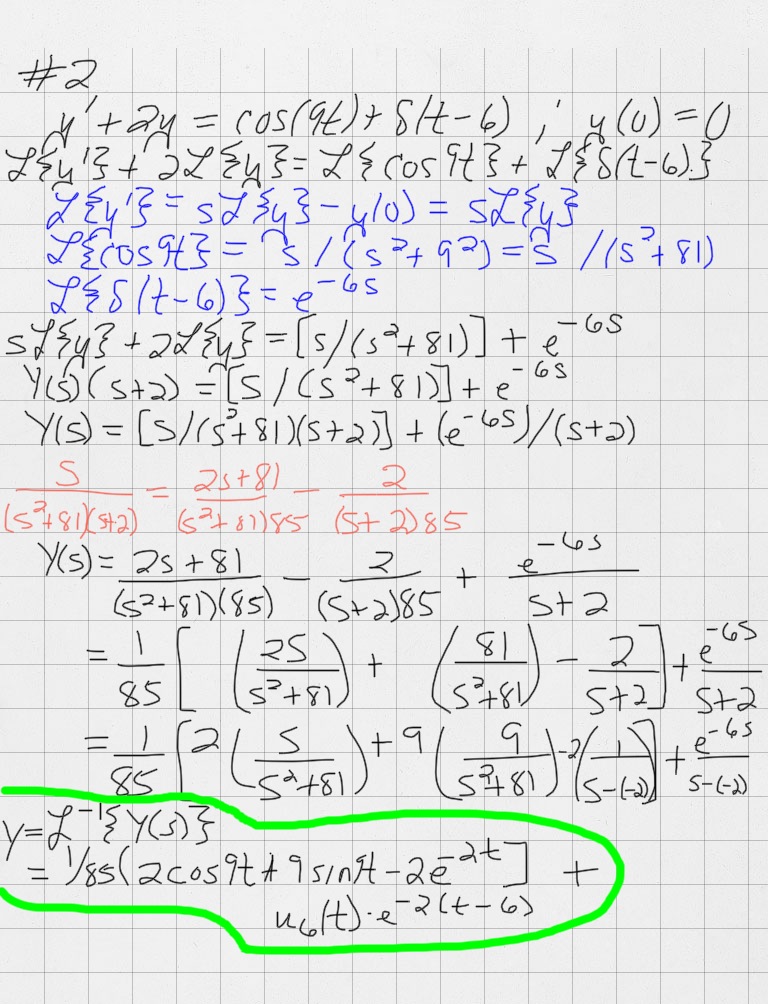 #2
y' + 2y = cos(9t) + δ(t-6) ; y(0) = 0
ℒ{y'} + 2ℒ{y} = ℒ{cos9t} + ℒ{δ(t-6)}
ℒ{y'} = sℒ{y} - y(0) = sℒ{y}
ℒ{cos9t} = s/(s²+9²) = s/(s²+81)
ℒ{δ(t-6)} = e^-6s
sℒ{y} + 2ℒ{y} = [s/(s²+81)] + e^-6s
Y(s)(s+2) = [s/(s²+81)] + e^-6s
Y(s) = [s/(s²+81)(s+2)] + (e^-6s)/(s+2)
s/(s²+81)(s+2) = 2s+81/(s²+81)85 - 2/(s+2)85
Y(s) = 2s+81/(s²+81)(85) - 2/(s+2)85 + e^-6s/s+2
= 1/85 [ (2s/s²+81) + (81/s²+81) - 2/s+2 ] + e^-6s/s+2
= 1/85 [ 2 (s/s²+81) + 9 (9/s²+81) -2 (1/s-(-2)) ] + e^-6s/s-(-2)
y = ℒ^-1{Y(s)}
= 1/85(2cos9t + 9sin9t - 2e^-2t] +
u₆(t)·e^-2(t-6)